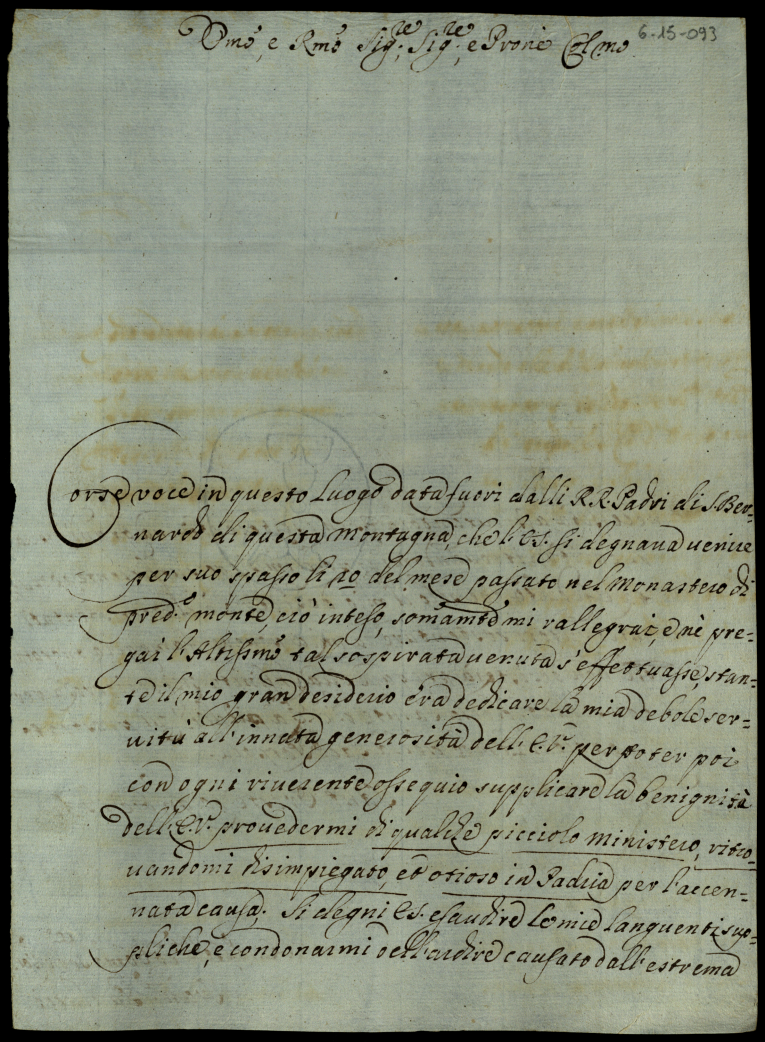 6-15-093
Emo, e Rmo Sig.re, Sig.re, e Prone Colmo
Corse voce in questo Luogo data fuori dalli R.R. Padri di S. Ber-
nardo di questa montagna, che l'E.S. si degnava venire
per suo spasso li 20 del mese passato nel Monastero di
pred.o monte, ciò inteso, somamte mi rallegrai, e nè pre-
gai l'Altissmo tal sospirata venuta s'effettuasse, stan-
te il mio gran desiderio era dedicare la mia debole ser-
vitù all'innata generosità dell'E.V. per poter poi
con ogni riverente ossequio supplicare la benignità
dell'E.V. provedermi di qualche picciolo ministero, ritro-
vandomi disimpiegato, et otioso in Padua per l'accen-
nata causa. Si degni E.S. esaudire le mie languenti sup-
pliche, e condonarmi dell'ardire causato dall'estrema